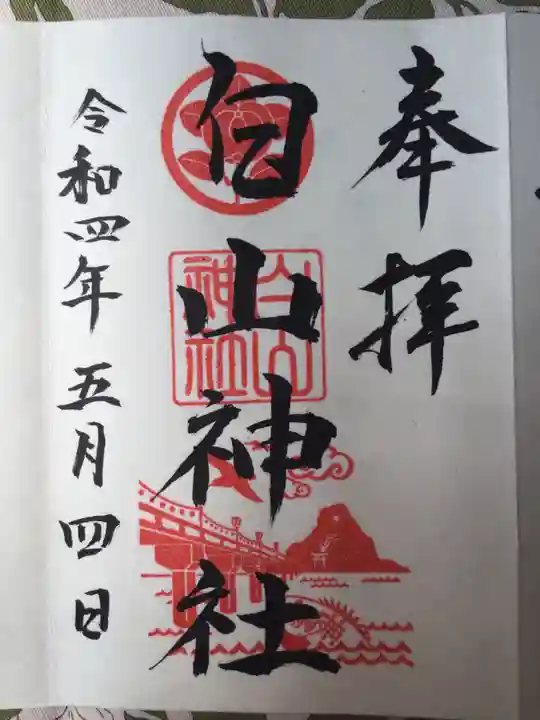 奉拝
白山神社
白山
神社
令和四年五月四日